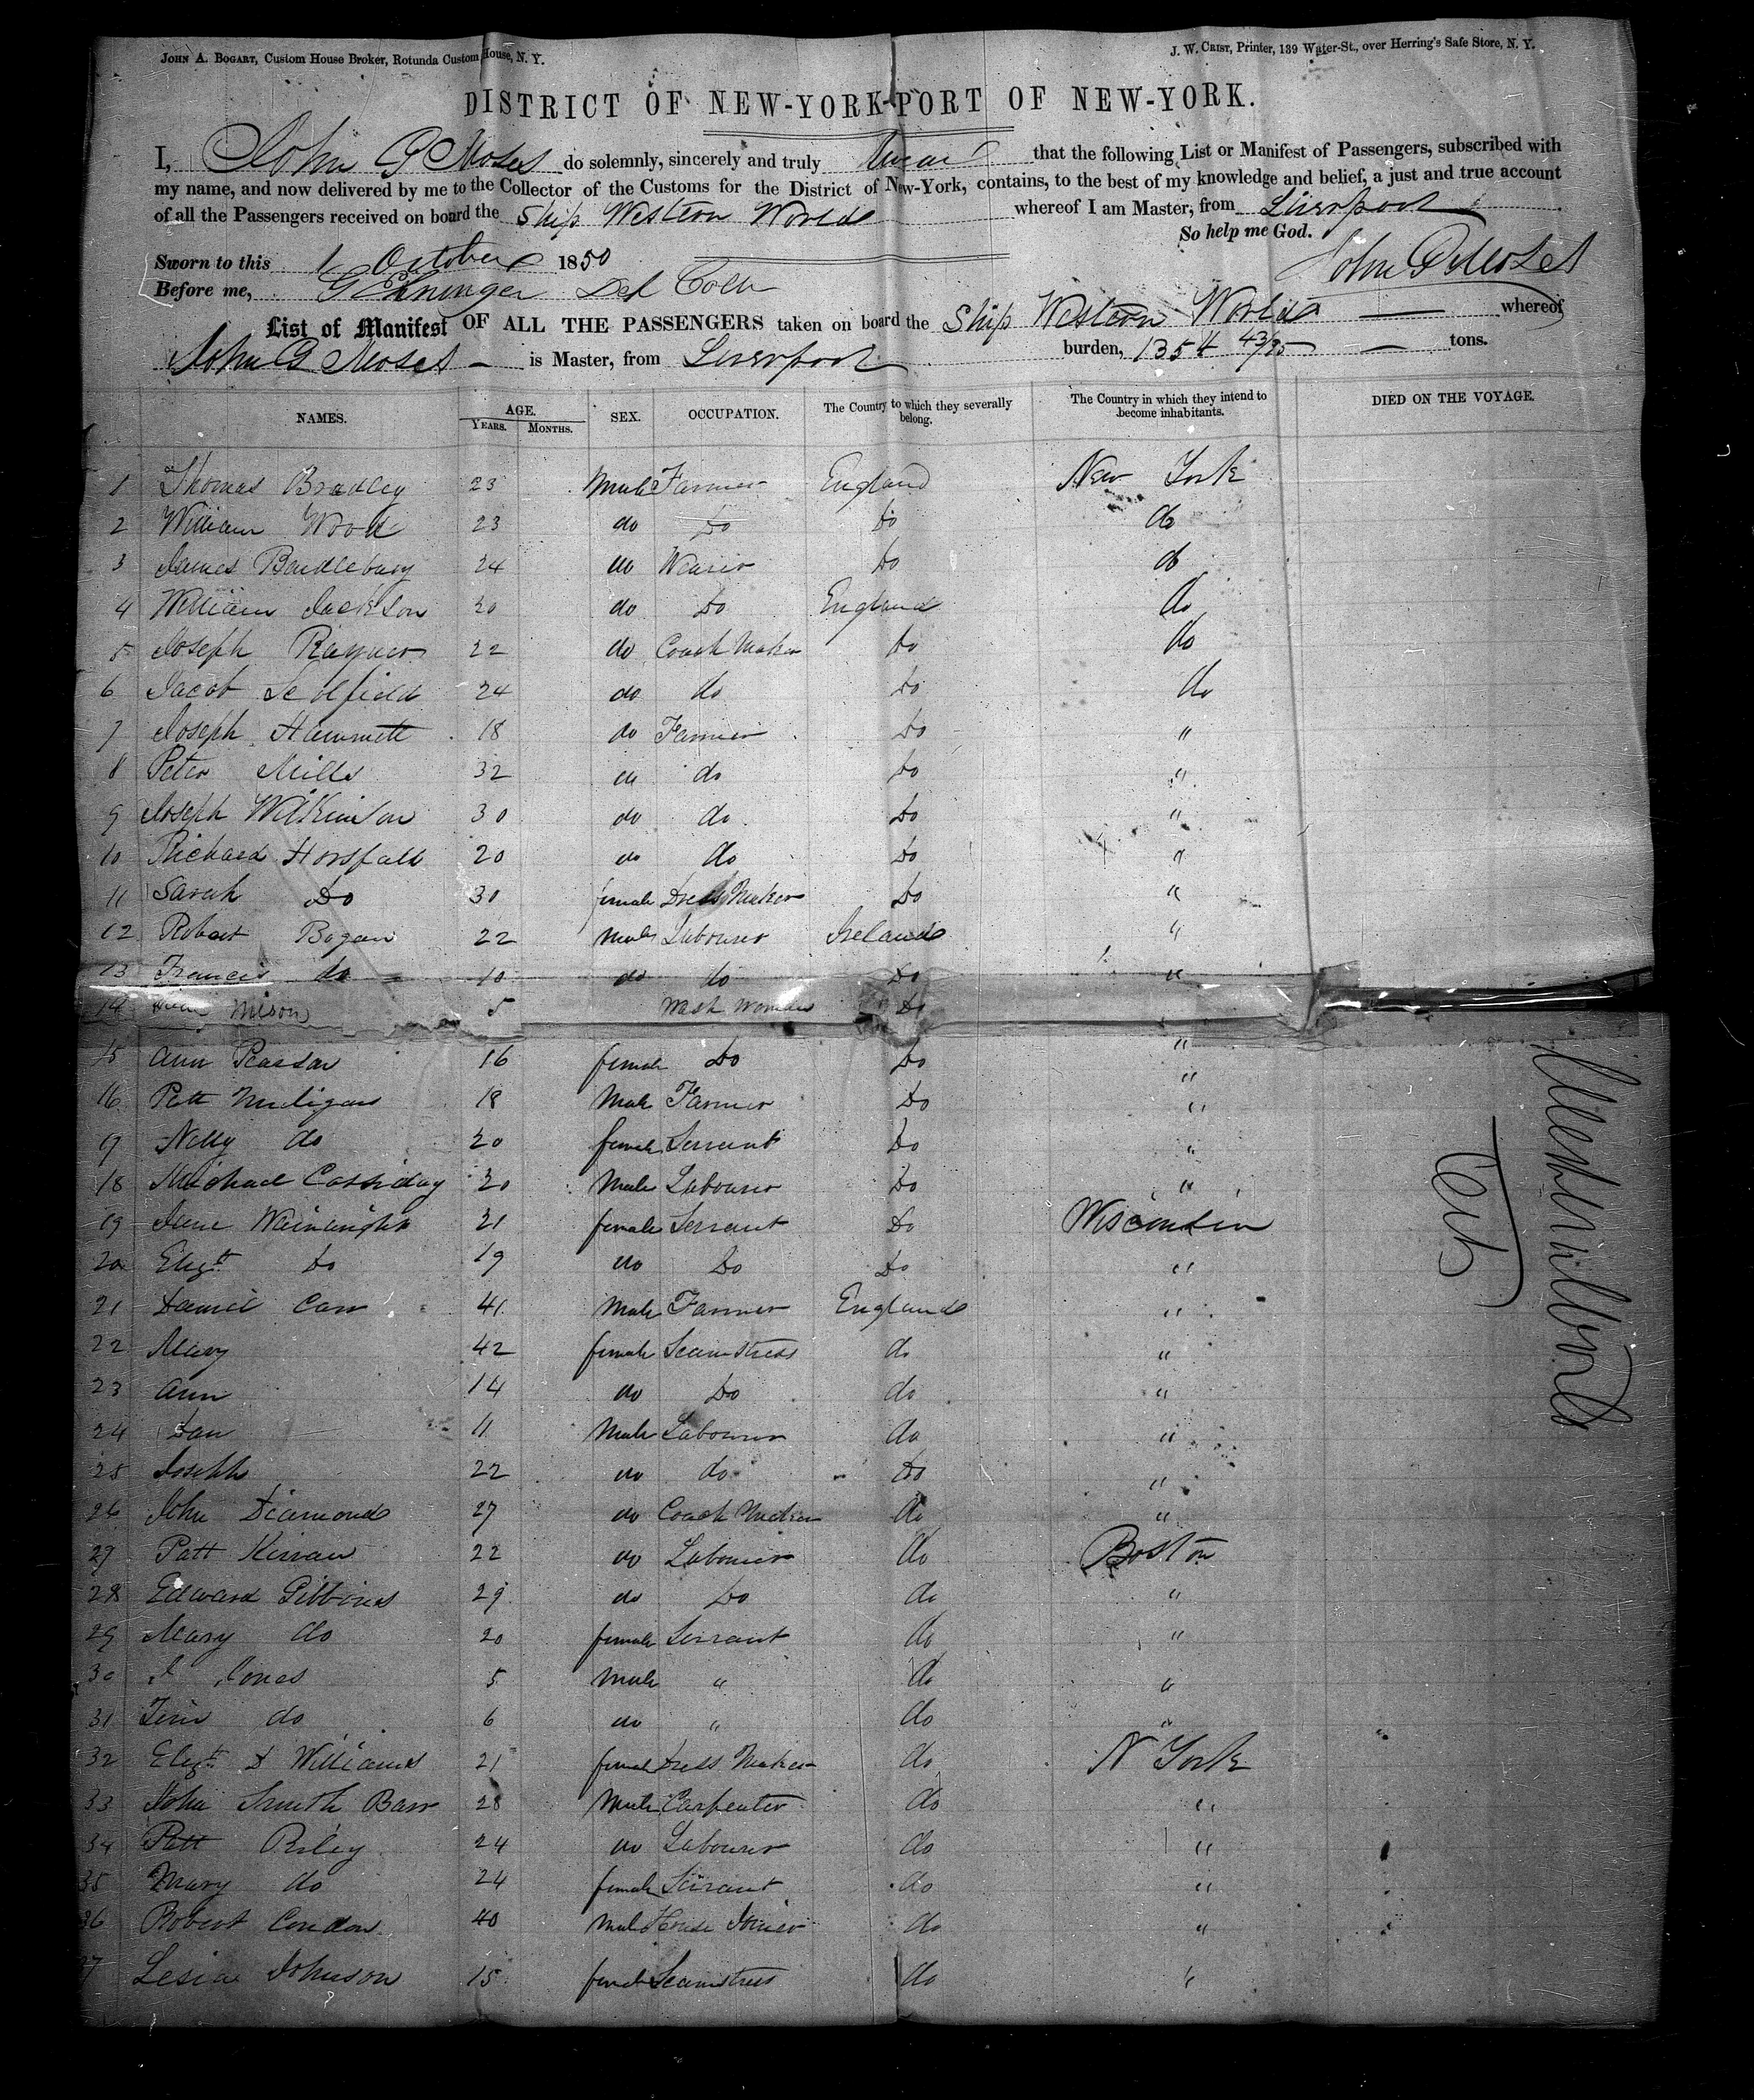 JOHN A. BOGART, Custom House Broker, Rotunda Custom House, N. Y.
J. W. CRIST, Printer, 139 Water-St., over Herring's Safe Store, N. Y.
DISTRICT OF NEW-YORK-PORT OF NEW-YORK.
I, John G Moses do solemnly, sincerely and truly swear that the following List or Manifest of Passengers, subscribed with
my name, and now delivered by me to the Collector of the Customs for the District of New-York, contains, to the best of my knowledge and belief, a just and true account
of all the Passengers received on board the Ship Western World whereof I am Master, from Liverpool
So help me God.
Sworn to this 1 October 1850
John G Moses
Before me, Dep Coll
List of Manifest OF ALL THE PASSENGERS taken on board the Ship Western World whereof
John G Moses is Master, from Liverpool burden, 1354 43/95 tons.
NAMES. AGE. YEARS. MONTHS. SEX. OCCUPATION. The Country to which they severally belong. The Country in which they intend to become inhabitants. DIED ON THE VOYAGE.
1 Thomas Bradley 23 Male Farmer England New York
2 William Wood 23 do Do Do do
3 James 24 do Weaver Do do
4 William Jackson 20 do Do England do
5 Joseph Rayner 22 do Coach Maker Do do
6 Jacob Scolfield 24 do do Do do
7 Joseph Hammett 18 do Farmer Do "
8 Peter Mills 32 do do Do "
9 Joseph Wilkinson 30 do do Do "
10 Richard Horsfall 20 do do Do "
11 Sarah Do 30 female Dress Maker Do "
12 Robert Bogan 22 Male Labourer Ireland "
13 Francis do 10 do do Do "
14 5 Wash Woman Do
15 Ann 16 female Do Do "
16 Patt Muligan 18 Male Farmer Do "
17 Nelly do 20 female Servant Do "
18 Michael Cassiday 30 Male Labourer Do "
19 Jane Wainwright 21 female Servant Do Wisconsin
20 Elizth Do 19 do Do Do "
21 Daniel Carr 41 Male Farmer England "
22 Mary 42 female Seamstress do "
23 Ann 14 do Do do "
24 Dan 11 Male Labourer do "
25 Joseph 22 do do Do "
26 John Diamond 27 do Coach Maker do "
27 Patt Kirwan 22 do Labourer do Boston
28 Edward Gibbons 29 do Do do "
29 Mary do 20 female Servant do "
30 J Jones 5 Male " do "
31 do 6 do " do "
32 Elizth D Williams 21 female Dress Maker do N York
33 John Smith Barr 28 Male Carpenter do "
34 Patt Riley 24 do Labourer do "
35 Mary do 24 female Servant do "
36 Robert Condon 40 Male House Joiner do "
37 Johnson 15 female Seamstress do "